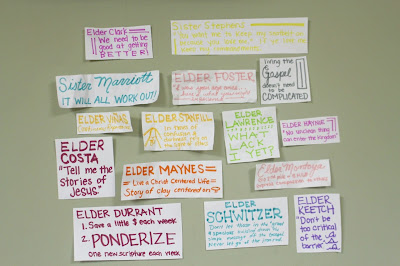 Elder Clark
We need to be
good at getting
BETTER!
Sister Stephens
"You want me to keep my
because you love me." If ye love me
keep my commandments.
Sister Marriott
IT WILL ALL WORK OUT!
ELDER FOSTER
living the
Gospel
doesn't need
to be
COMPLICATED
ELDER VINAS
ELDER STANFILL
In times of
ELDER
LAWRENCE
WHAT
LACK
I YET?
ELDER HAYNIE
"No unclean thing
can enter the kingdom"
ELDER
COSTA
"Tell me the
Stories of
Jesus."
ELDER MAYNES
Live a Christ Centered Life
Story of clay centered on
Elder Montoya
ELDER DURRANT
1. Save a little $ each week
2. PONDERIZE
one new scripture each week
ELDER
SCHWITZER
ELDER
KEETCH
"Don't be
too critical
of the
barrier"